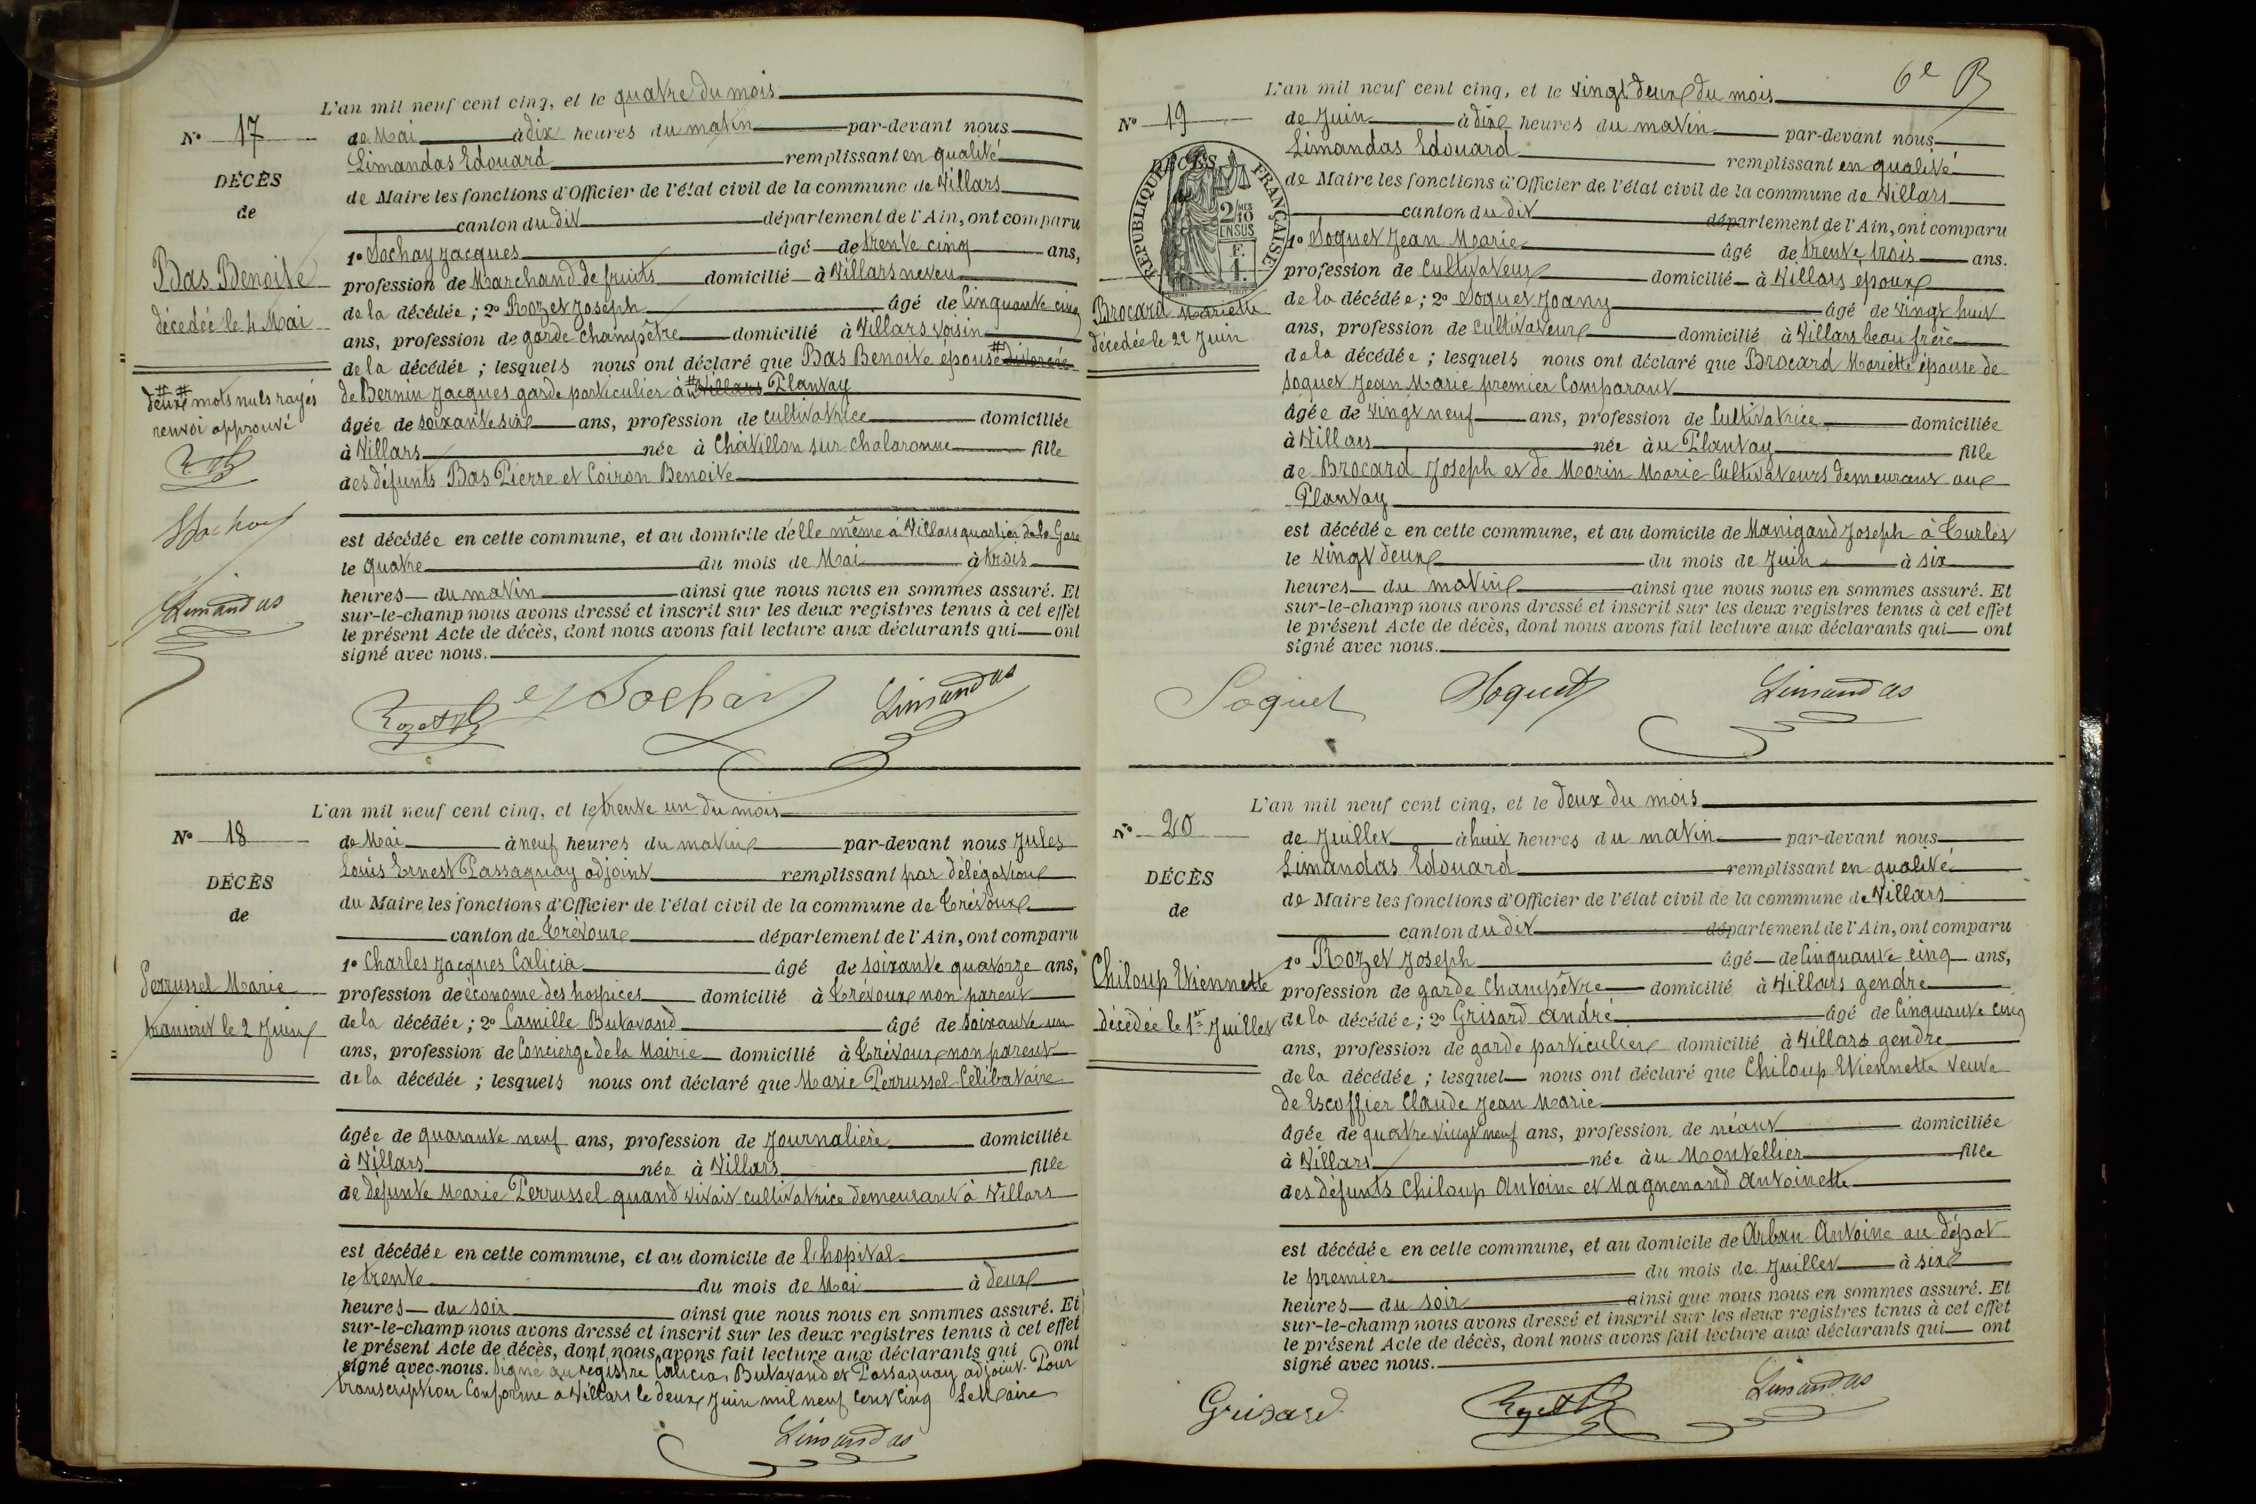 L'an mil neuf cent cinq, et le quatre du mois
N° 17
de Mai à dix heures du matin par-devant nous
Limandas Edouard remplissant en qualité
DÉCÈS
de Maire les fonctions d'Officier de l'état civil de la commune de Villars
de
canton du dit département de l'Ain, ont comparu
1° Sochay Jacques âgé de trente cinq ans,
Bas Benoite
profession de Marchand de fruits domicilié à Villars neveu
décédée le 4 Mai
de la décédée ; 2° Rozet Joseph âgé de Cinquante cinq
ans, profession de garde Champêtre domicilié à Villars voisin
de la décédée ; lesquels nous ont déclaré que Bas Benoite épouse # divorcée
# #
deux mots nuls rayés
renvoi approuvé
de Bernin Jacques garde particulier à # Villars Planvay
âgée de soixante six ans, profession de cultivatrice domiciliée
à Villars née à Châtillon sur chalaronne fille
des défunts Bas Pierre et Coiron Benoite
est décédée en cette commune, et au domicile d'elle même à Villars quartier de la Gare
le quatre du mois de Mai à trois
heures du matin ainsi que nous nous en sommes assuré. Et
Limandas
sur-le-champ nous avons dressé et inscrit sur les deux registres tenus à cet effet
le présent Acte de décès, dont nous avons fait lecture aux déclarants qui ont
signé avec nous.
Rozet Sochay Limandas
L'an mil neuf cent cinq, et le trente un du mois
N° 18
de Mai à neuf heures du matin par-devant nous Jules
Louis Ernest Passaquay adjoint remplissant par délégation
DÉCÈS
du Maire les fonctions d'Officier de l'état civil de la commune de Trévoux
de
canton de Trévoux département de l'Ain, ont comparu
1° Charles Jacques Calicia âgé de soixante quatorze ans,
Perrussel Marie
profession de économe des hospices domicilié à Trévoux non parent
transcrit le 2 Juin
de la décédée ; 2° Camille Butavand âgé de soixante un
ans, profession de Concierge de la Mairie domicilié à Trévoux non parent
de la décédée ; lesquels nous ont déclaré que Marie Perrussel Célibataire
âgée de quarante neuf ans, profession de Journalière domiciliée
à Villars née à Villars fille
de défunte Marie Perrussel quand vivait cultivatrice demeurant à Villars
est décédée en cette commune, et au domicile de l'hopital
le trente du mois de Mai à deux
heures du soir ainsi que nous nous en sommes assuré. Et
sur-le-champ nous avons dressé et inscrit sur les deux registres tenus à cet effet
le présent Acte de décès, dont nous avons fait lecture aux déclarants qui ont
signé avec nous. Signé au registre Calicia, Butavand et Passaquay adjoint. Pour
transcription Conforme à Villars le deux Juin mil neuf cent cinq Le Maire
Limandas
6e
L'an mil neuf cent cinq, et le vingt deux du mois
N° 19
de Juin à dix heures du matin par-devant nous
Limandas Edouard remplissant en qualité
DÉCÈS
RÉPUBLIQUE FRANÇAISE
2/10 MES
EN SUS
de Maire les fonctions d'Officier de l'état civil de la commune de Villars
canton du dit département de l'Ain, ont comparu
1° Soquet Jean Marie âgé de trente trois ans.
profession de Cultivateur domicilié à Villars époux
Brocard Mariette
de la décédée ; 2° Soquet Joany âgé de vingt huit
décédée le 22 Juin
ans, profession de cultivateur domicilié à Villars beau frère
de la décédée ; lesquels nous ont déclaré que Brocard Mariette épouse de
Soquet Jean Marie premier Comparant
âgée de vingt neuf ans, profession de Cultivatrice domiciliée
à Villars née au Plantay fille
de Brocard Joseph et de Morin Marie Cultivateurs demeurant au
Plantay
est décédée en cette commune, et au domicile de Manigand Joseph à Curlet
le vingt deux du mois de Juin à six
heures du matin ainsi que nous nous en sommes assuré. Et
sur-le-champ nous avons dressé et inscrit sur les deux registres tenus à cet effet
le présent Acte de décès, dont nous avons fait lecture aux déclarants qui ont
signé avec nous.
Soquet Soquet Limandas
L'an mil neuf cent cinq, et le deux du mois
N° 20
de Juillet à huit heures du matin par-devant nous
Limandas Edouard remplissant en qualité
DÉCÈS
de Maire les fonctions d'Officier de l'état civil de la commune de Villars
de
canton du dit département de l'Ain, ont comparu
1° Rozet Joseph âgé de Cinquante cinq ans,
Chiloup Etiennette
profession de garde Champêtre domicilié à Villars gendre
décédée le 1er Juillet
de la décédée ; 2° Grisard André âgé de Cinquante cinq
ans, profession de garde particulier domicilié à Villars gendre
de la décédée ; lesquel nous ont déclaré que Chiloup Etiennette veuve
de Escoffier Claude Jean Marie
âgée de quatre vingt neuf ans, profession de néant domiciliée
à Villars née au Montellier fille
des défunts Chiloup Antoine et Magnenand Antoinette
est décédée en cette commune, et au domicile de Arban Antoine au dépot
le premier du mois de Juillet à six
heures du soir ainsi que nous nous en sommes assuré. Et
sur-le-champ nous avons dressé et inscrit sur les deux registres tenus à cet effet
le présent Acte de décès, dont nous avons fait lecture aux déclarants qui ont
signé avec nous.
Grisard Rozet Limandas